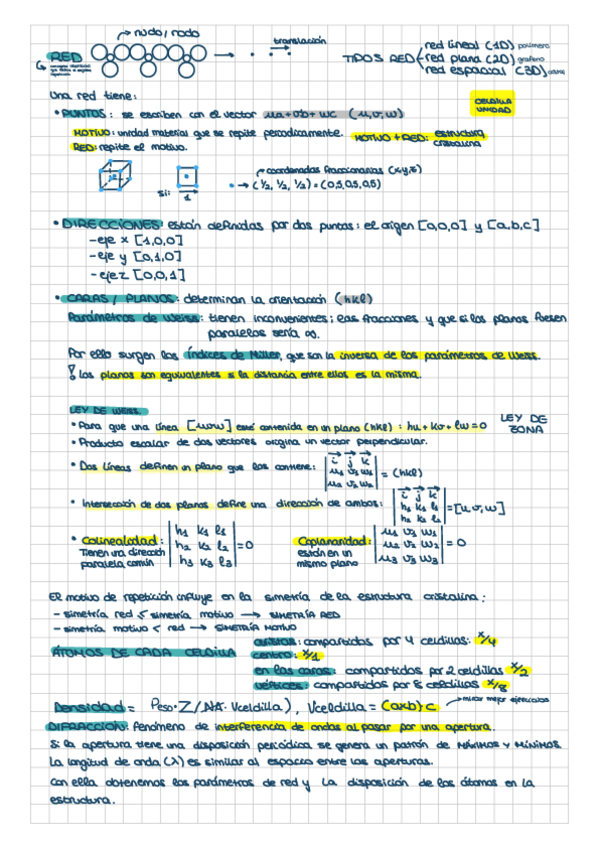 nudo / nodo
translación
RED
TIPOS RED
red lineal (1D) polímero
red plana (2D) grafeno
red espacial (3D)
Una red tiene:
CELDILLA UNIDAD
• PUNTOS: se escriben con el vector ua+vb+wc (u,v,w)
MOTIVO: unidad material que se repite periodicamente.
MOTIVO + RED: estructura cristalina
RED: repite el motivo.
coordenadas fraccionarias (x,y,z)
si: 1
• → (1/2, 1/2, 1/2) = (0,5,0,5,0,5)
• DIRECCIONES: están definidas por dos puntos: el origen [0,0,0] y [a,b,c]
- eje x [1,0,0]
- eje y [0,1,0]
- eje z [0,0,1]
• CARAS / PLANOS: determinan la orientación (hkl)
Parámetros de Weiss: tienen inconvenientes; las fracciones y que si los planos fuesen
paralelos sería ∞.
Por ello surgen los índices de Miller, que son la inversa de los parámetros de Weiss.
! Los planos son equivalentes si la distancia entre ellos es la misma.
LEY DE WEISS
• Para que una línea [uvw] esté contenida en un plano (hkl) : hu + kv + lw = 0
LEY DE ZONA
• Producto escalar de dos vectores origina un vector perpendicular.
• Dos líneas definen un plano que los contiene:
i j k
u1 v1 w1
u2 v2 w2
= (hkl)
• Intersección de dos planos define una dirección de ambos:
i j k
h1 k1 l1
h2 k2 l2
= [u,v,w]
• Colinealidad:
Tienen una dirección
paralela común
h1 k1 l1
h2 k2 l2
h3 k3 l3
= 0
Coplanaridad:
están en un
mismo plano
u1 v1 w1
u2 v2 w2
u3 v3 w3
= 0
El motivo de repetición influye en la simetría de la estructura cristalina:
- simetría red < simetría motivo → SIMETRÍA RED
- simetría motivo < red → SIMETRÍA MOTIVO
ÁTOMOS DE CADA CELDILLA
aristas: compartidos por 4 celdillas: x/4
centro: x/1
en las caras: compartidos por 2 celdillas x/2
vértices: compartidos por 8 celdillas x/8
Densidad = Peso·Z/NA·Vceldilla), Vceldilla = (axb)·c
mirar mejor ejercicios
DIFRACCIÓN: fenómeno de interferencia de ondas al pasar por una apertura.
Si la apertura tiene una disposición periódica se genera un patrón de MÁXIMOS Y MÍNIMOS.
La longitud de onda (λ) es similar al espacio entre las aperturas.
Con ella obtenemos los parámetros de red y la disposición de los átomos en la
estructura.